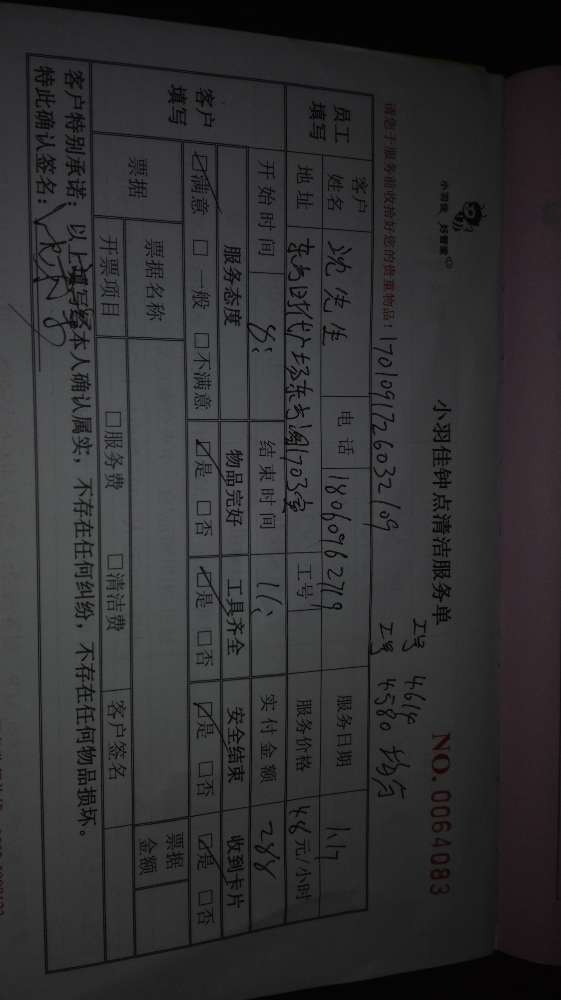 小羽佳 好管家
小羽佳钟点清洁服务单
NO. 0064083
工号 4614
工号 4580
请您于服务前收拾好您的贵重物品! 1701091726032109
员工填写 客户姓名 沈先生 电话 18060962719 服务日期 1.17
地址 1703室 工号 服务价格 48元/小时
开始时间 8: 结束时间 11: 实付金额 288
客户填写 服务态度 物品完好 工具齐全 安全结束 收到卡片
☑满意 □一般 □不满意 ☑是 □否 ☑是 □否 ☑是 □否 ☑是 □否
票据 票据名称 票据金额
开票项目 □服务费 □清洁费 客户签名
客户特别承诺:以上填写经本人确认属实,不存在任何纠纷,不存在任何物品损坏。
特此确认签名: